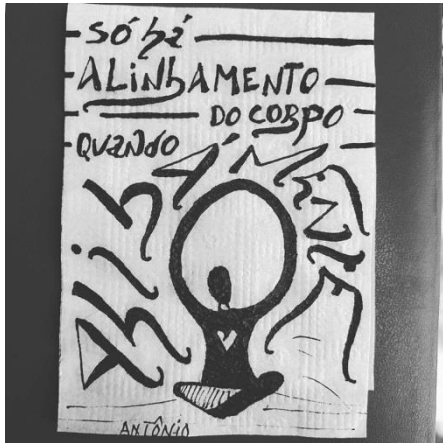 SÓ há
ALINhAMENTO
DO CORPO
QUANDO
ALINhA MENTE
ANTÔNIO